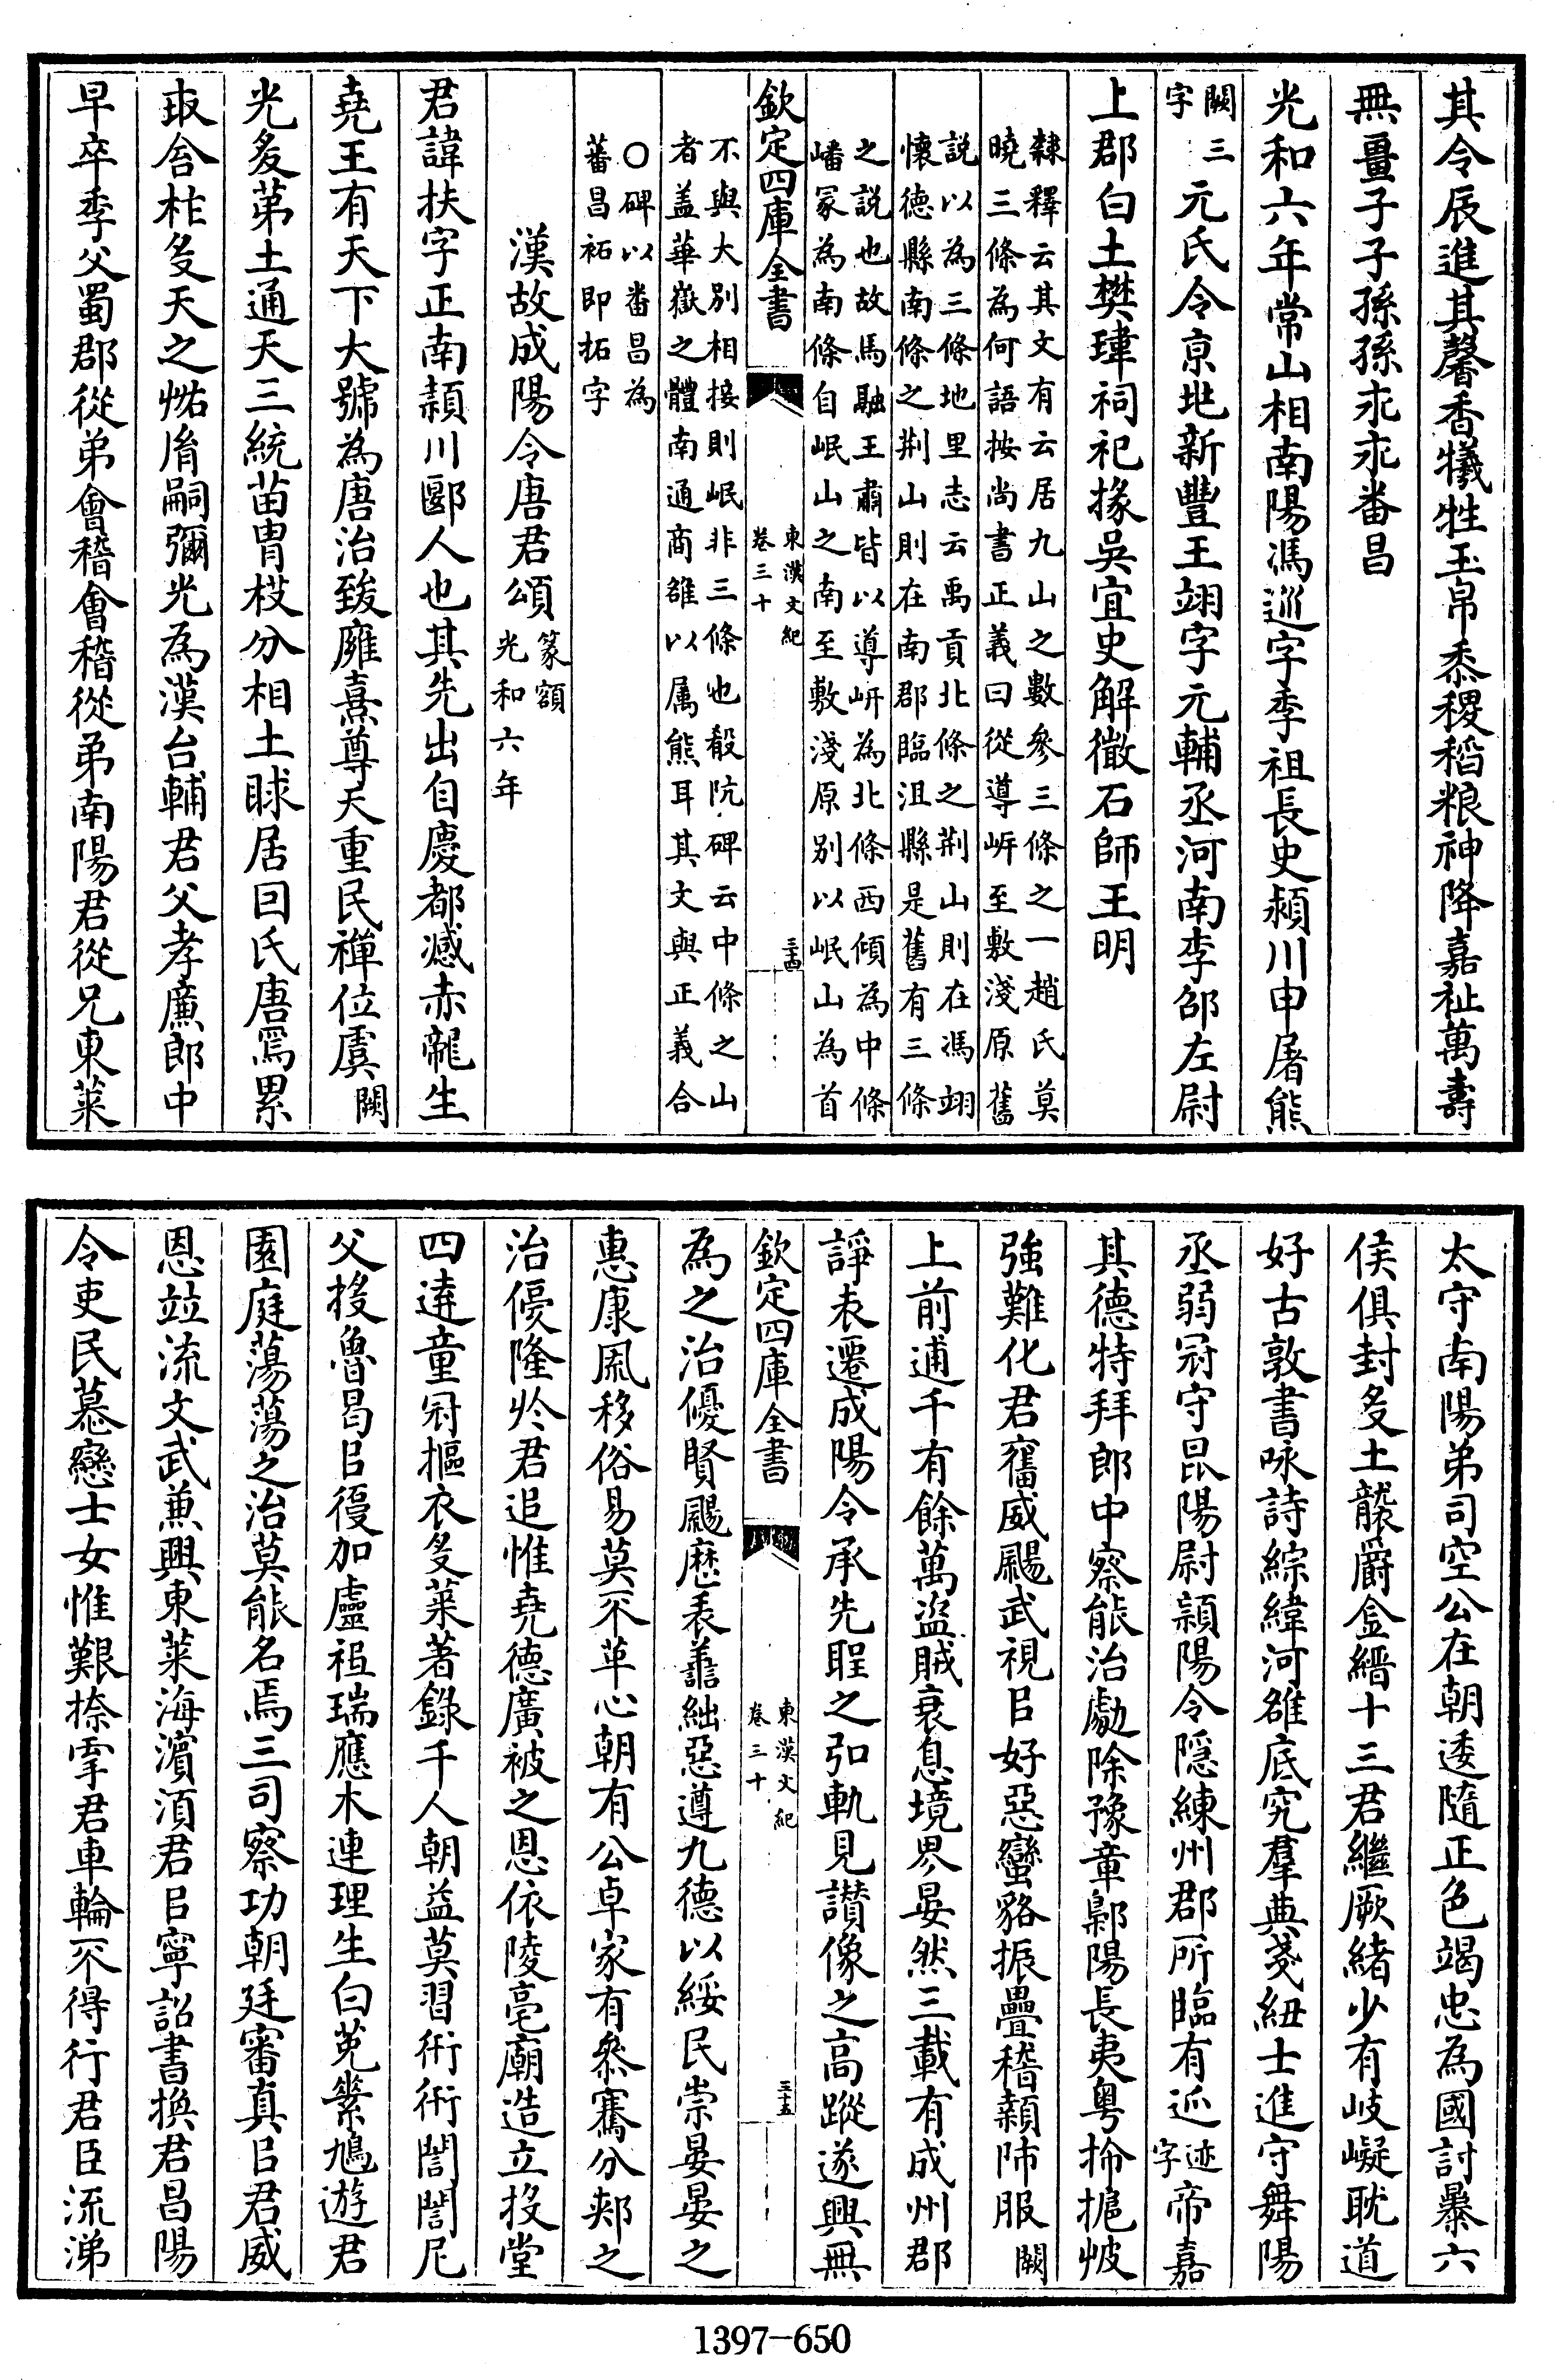 其令辰進其馨香犧牲玉帛黍稷稻粮神降嘉祉萬壽
無畺子子孫孫永永番昌
光和六年常山相南陽馮巡字季祖長史潁川申屠熊
闕三字元氏令京兆新豐王翊字元輔丞河南李邵左尉
上郡白土樊瑋祠祀掾吳宜史解徵石師王明
隸釋云其文有云居九山之數參三條之一趙氏莫
曉三條為何語按尚書正義曰從導岍至敷淺原舊
説以為三條地里志云禹貢北條之荆山則在馮翊
懷德縣南條之荆山則在南郡臨沮縣是舊有三條
之説也故馬融王肅皆以導岍為北條西傾為中條
嶓冢為南條自岷山之南至敷淺原别以岷山為首
欽定四庫全書
東漢文紀
卷三十
三十四
不與大别相接則岷非三條也殽阬碑云中條之山
者盖華嶽之體南通商雒以屬熊耳其文與正義合
〇碑以番昌為
蕃昌袥即拓字
漢故成陽令唐君頌篆額
光和六年
君諱扶字正南潁川郾人也其先出自慶都感赤龍生
堯王有天下大號為唐治致雍熹尊天重民禪位虞闕
光㕛苐土通天三統苗胄枝分相土眎居因氏唐焉累
取舍柞㕛天之怙胤嗣彌光為漢台輔君父孝廉郎中
早卒季父蜀郡從弟會稽會稽從弟南陽君從兄東萊
太守南陽弟司空公在朝逶隨正色竭忠為國討暴六
侯俱封㕛土襲爵金縉十三君繼厥緒少有岐嶷耽道
好古敦書咏詩綜緯河雒底究羣典戔紐士進守舞陽
丞弱冠守昆陽尉潁陽令隱練州郡所臨有䢋迹字帝嘉
其德特拜郎中察能治劇除豫章鄡陽長夷粤拎摅㤭
強難化君奮威颺武視㠯好惡蠻貉振疊稽顙帥服闕
上前逋千有餘萬盗賊衰息境界晏然三載有成州郡
諍表遷成陽令承先聖之弘軌見讃像之高蹤遂興無
欽定四庫全書
東漢文紀
卷三十
三十五
為之治優賢颺歴表善絀惡遵九德以綏民崇晏晏之
惠康風移俗易莫不革心朝有公卓家有叅騫分郟之
治優隆於君追惟堯德廣被之恩依陵亳廟造立授堂
四逹童冠摳衣㕛萊著錄千人朝益莫習衎衎誾誾尼
父授魯曷㠯復加盧祖瑞應木連理生白菟素鳩遊君
園庭蕩蕩之治莫能名焉三司察功朝廷審真㠯君威
恩竝流文武兼興東萊海濵湏君㠯寧詔書換君昌陽
令吏民慕戀士女惟艱捺掌君車輪不得行君臣流涕
1397—650